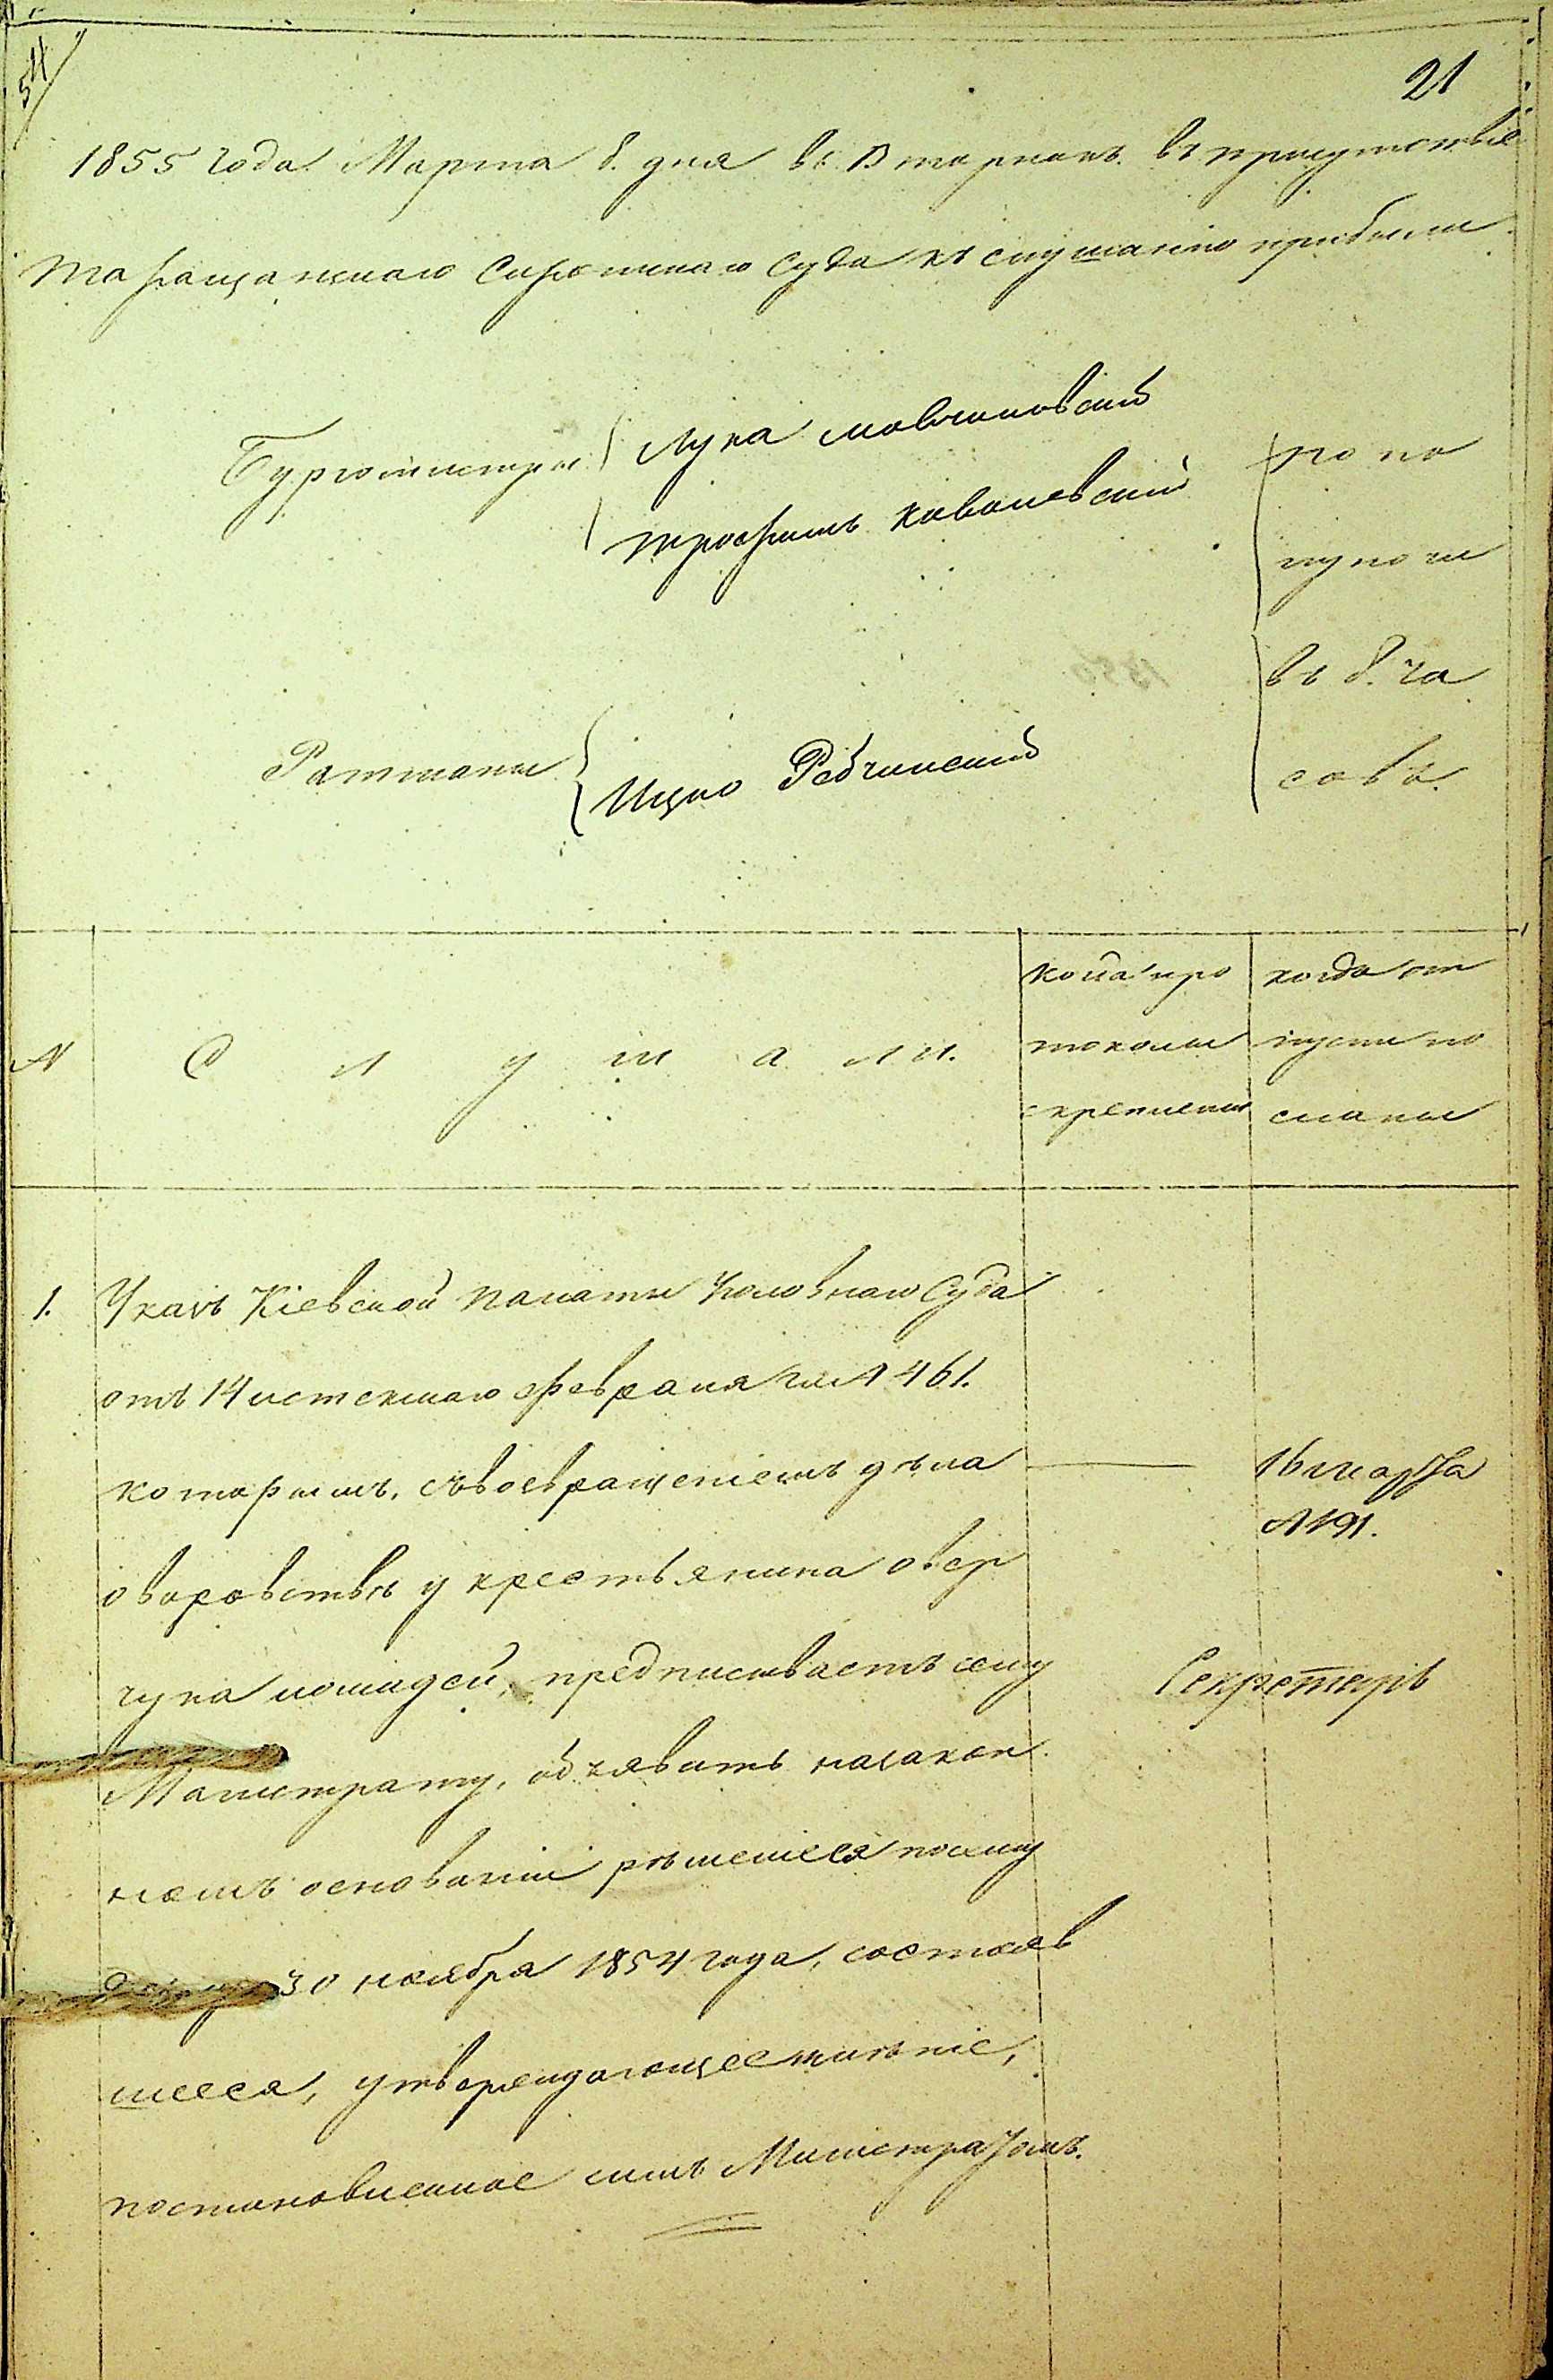 54
21
1855 года Марта 8. дня во Вторникъ. въ присутствіе
Таращанскаго Сиротскаго Суда къ слушанію прибыли
Бургомистры
Лука Мовчановскій
Трофимъ Ковалевскій
по по
луночи
въ 8. ча
совъ.
Ратманы
Ицко Рабчинскій
№
С л у ш а л и.
коііа про
токолы
скреплены
когда от
пуски по
сланы
1. Указъ Кіевской Палаты Уголовнаго Суда
отъ 14 истекшаго Февраля за № 461.
которымъ, съ возвращеніемъ дѣла
о воровствѣ у крестьянина Овер
чука лошадей, предписываетъ сему
Магистрату, объявить на закон
номъ основаніи рѣшеніе посему
30 ноября 1854 года, состояв
шееся, утверждающее мнѣніе,
постановленное симъ Магистратомъ.
16 марта
№ 191.
Секретарь